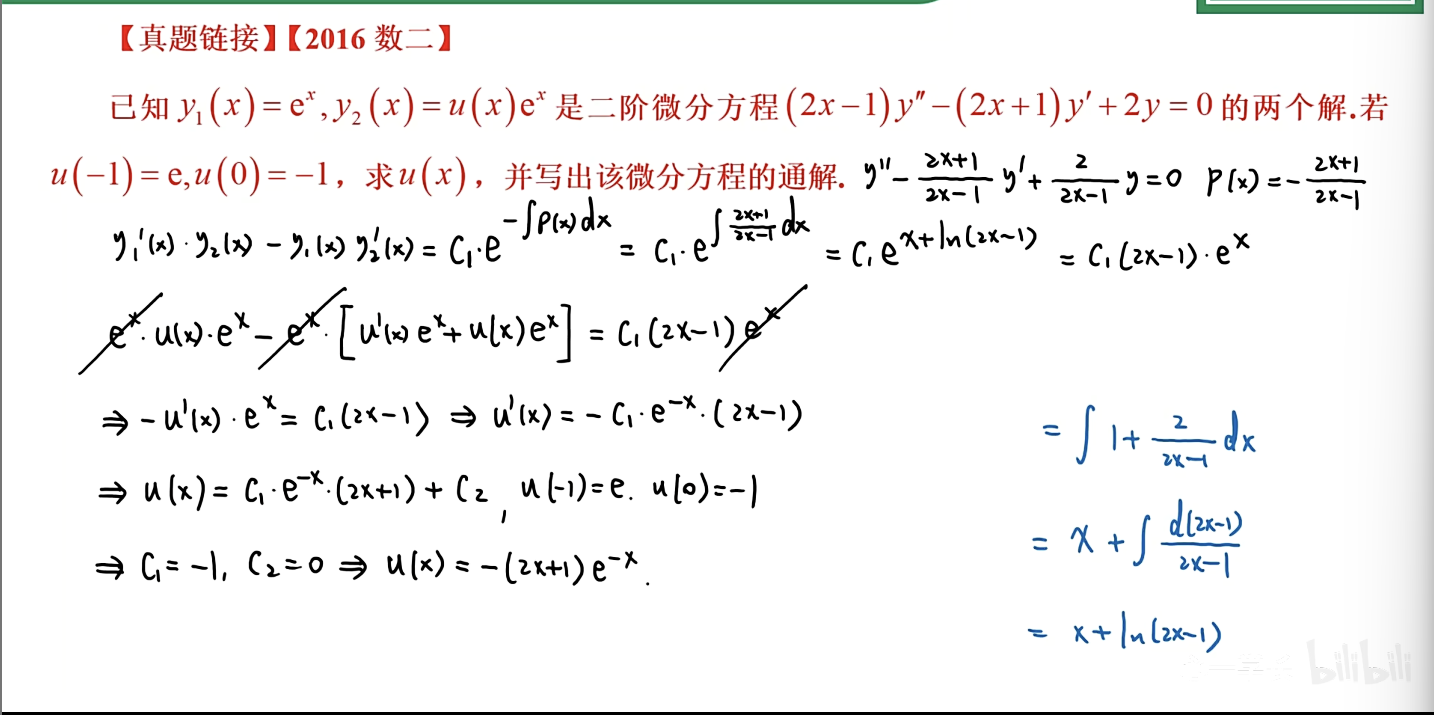 【真题链接】【2016 数二】
已知 y₁(x)=eˣ, y₂(x)=u(x)eˣ 是二阶微分方程(2x−1)y″−(2x+1)y′+2y=0 的两个解.若
u(−1)=e,u(0)=−1，求u(x)，并写出该微分方程的通解. y″−\frac{2x+1}{2x−1}y′+\frac{2}{2x−1}y=0 P(x)=−\frac{2x+1}{2x−1}
y₁′(x)·y₂(x)−y₁(x)y₂′(x)=C₁·e^{−∫P(x)dx}=C₁·e^{∫\frac{2x+1}{2x−1}dx}=C₁e^{x+ln(2x−1)}=C₁(2x−1)·eˣ
eˣ·u(x)·eˣ−eˣ·[u′(x)eˣ+u(x)eˣ]=C₁(2x−1)eˣ
⇒−u′(x)·eˣ=C₁(2x−1)⇒u′(x)=−C₁·e^{−x}·(2x−1)
⇒u(x)=C₁·e^{−x}·(2x+1)+C₂, u(−1)=e. u(0)=−1
⇒C₁=−1, C₂=0⇒u(x)=−(2x+1)e^{−x}.
=∫1+\frac{2}{2x−1}dx
=x+∫\frac{d(2x−1)}{2x−1}
=x+ln(2x−1)
bilibili